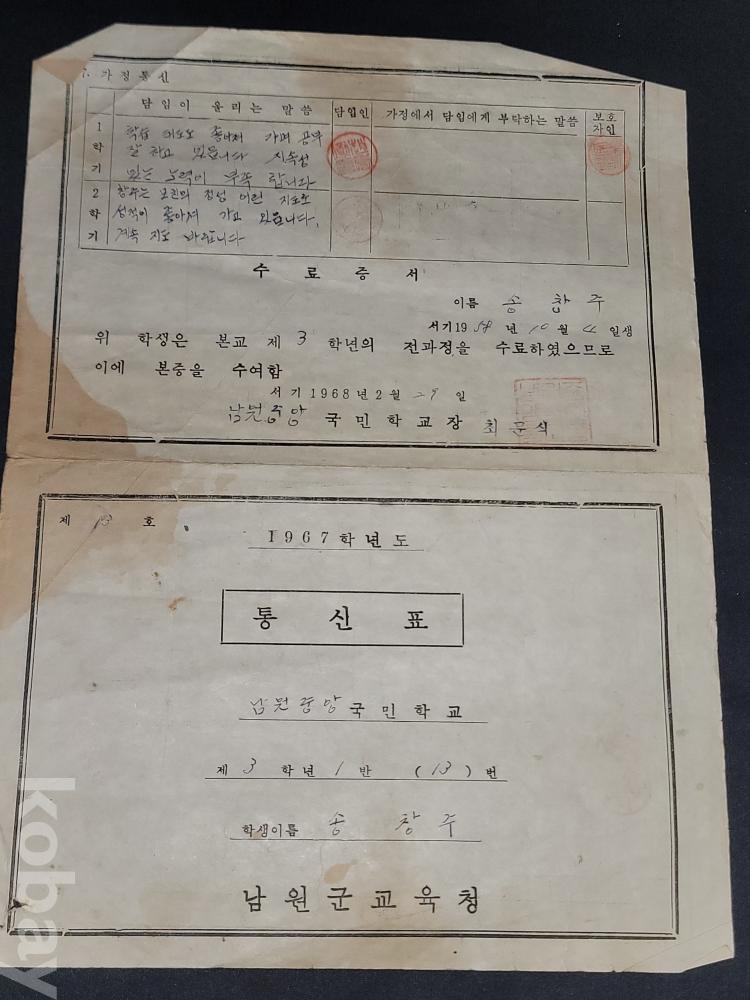 7. 가정통신
담임이 올리는 말씀 담임인 가정에서 담임에게 부탁하는 말씀 보호자인
1학기
좋아져 가며 공부
잘 하고 있읍니다 지속성
있는 노력이 부족 합니다
2학기
창주는 모친의 정성 어린 지도로
성적이 좋아져 가고 있읍니다.
계속 지도 바랍니다
수료증서
이름 송창주
서기 1958년 10월 4일생
위 학생은 본교 제 3 학년의 전과정을 수료하였으므로
이에 본증을 수여함
서기 1968년 2월 29일
남원중앙 국민학교장 최문식
제 13 호
1967학년도
통신표
남원중앙국민학교
제 3 학년 1 반 (13) 번
학생이름 송창주
남원군교육청
kobay